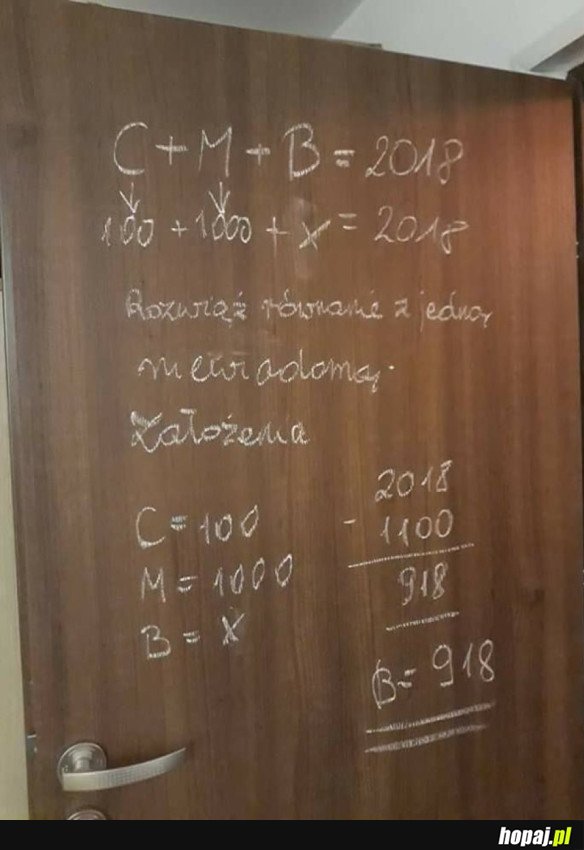 C+M+B=2018
100+1000+x=2018
Rozwiąż równanie z jedną
niewiadomą.
Założenia
2018
C=100
- 1100
M=1000
918
B=X
B=918
hopaj.pl